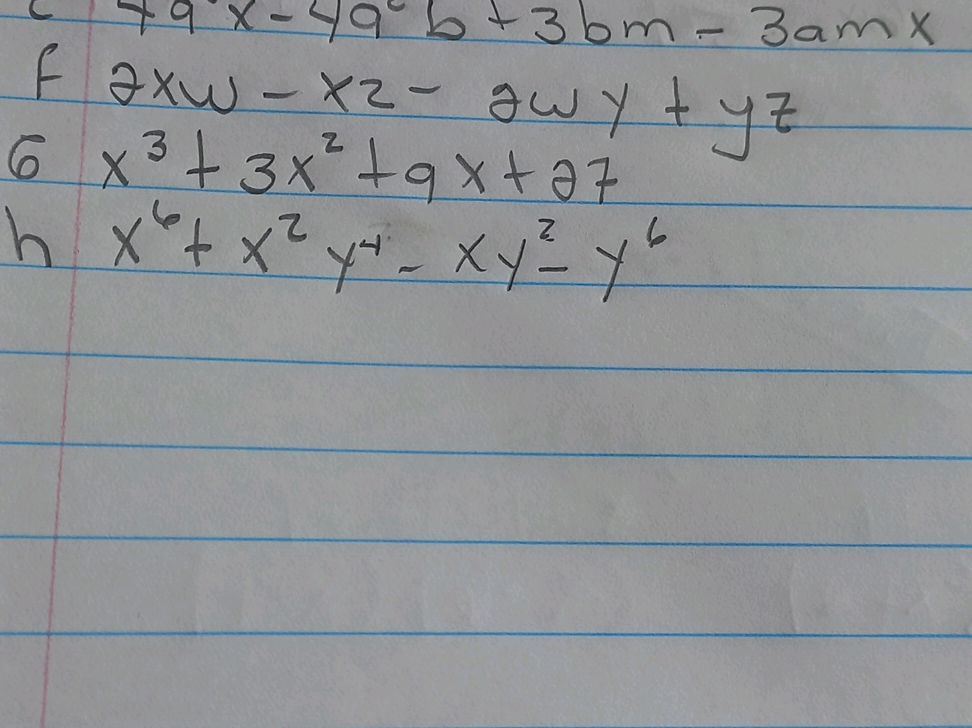 x - 4a b + 3bm - 3amx
f 2xw - xz - 2wy + yz
G x³ + 3x² + 9x + 27
h x⁶ + x² y⁴ - xy² - y⁶